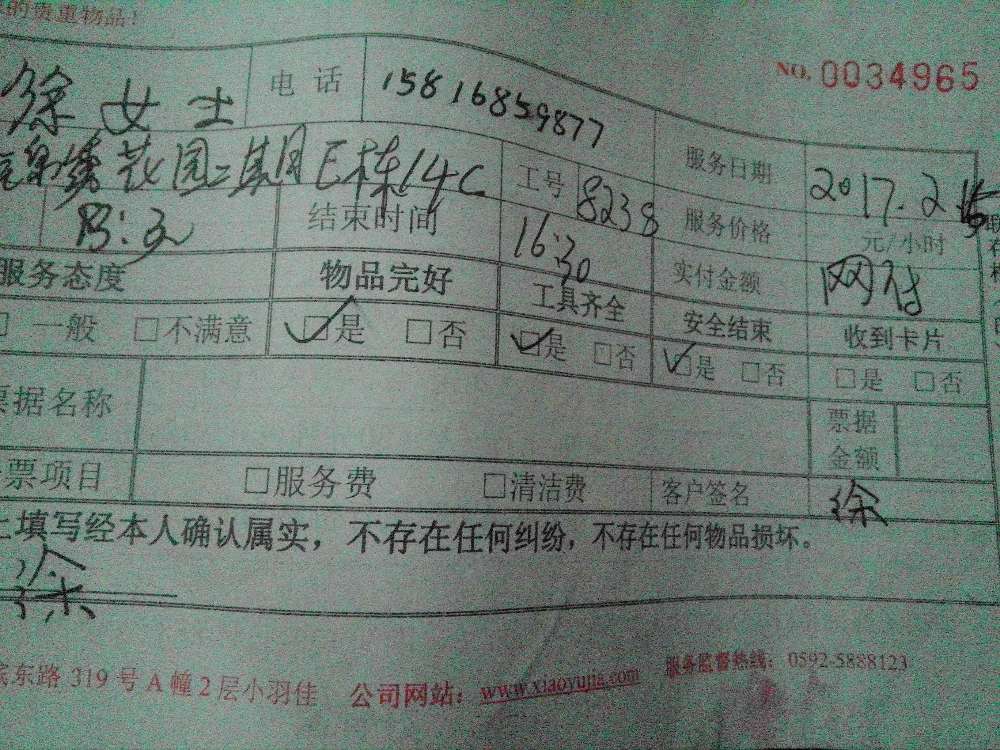 的贵重物品!
NO. 0034965
徐女士 电话 15816859877 服务日期 2017.2.15
锦绣花园二期E栋14C 工号 8238 服务价格 元/小时
13:30 结束时间 16:30 实付金额 网付
服务态度 物品完好 工具齐全 安全结束 收到卡片
□一般 □不满意 ☑是 □否 ☑是 □否 ☑是 □否 □是 □否
票据名称 票据金额
票项目 □服务费 □清洁费 客户签名 徐
上填写经本人确认属实，不存在任何纠纷，不存在任何物品损坏。
徐
东路319号A幢2层小羽佳 公司网站：www.xiaoyujia.com 服务监督热线：0592-5888123